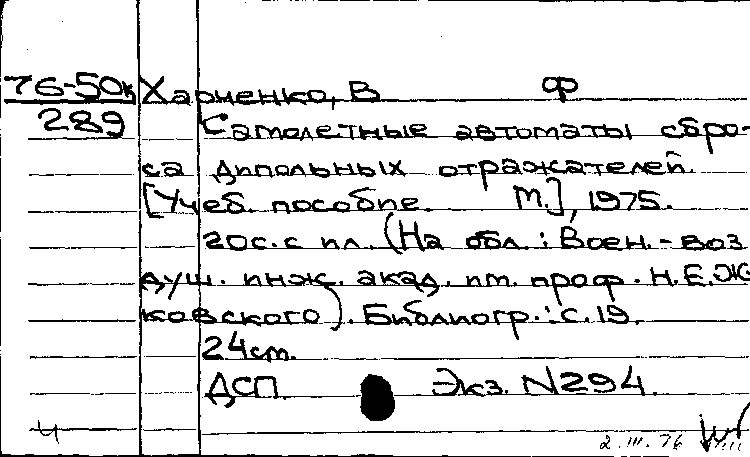 76-50к Харченко, В Ф
289 Самолетные автоматы сбро-
са дипольных отражателей.
[Учеб. пособие. М.], 1975.
20с. с ил. (На обл.: Воен.-воз
душ. инж. акад. им. проф. Н.Е. Ж
ковского). Библиогр.: с. 19.
24см.
ДСП. Экз. N294.
Ч
2.III.76